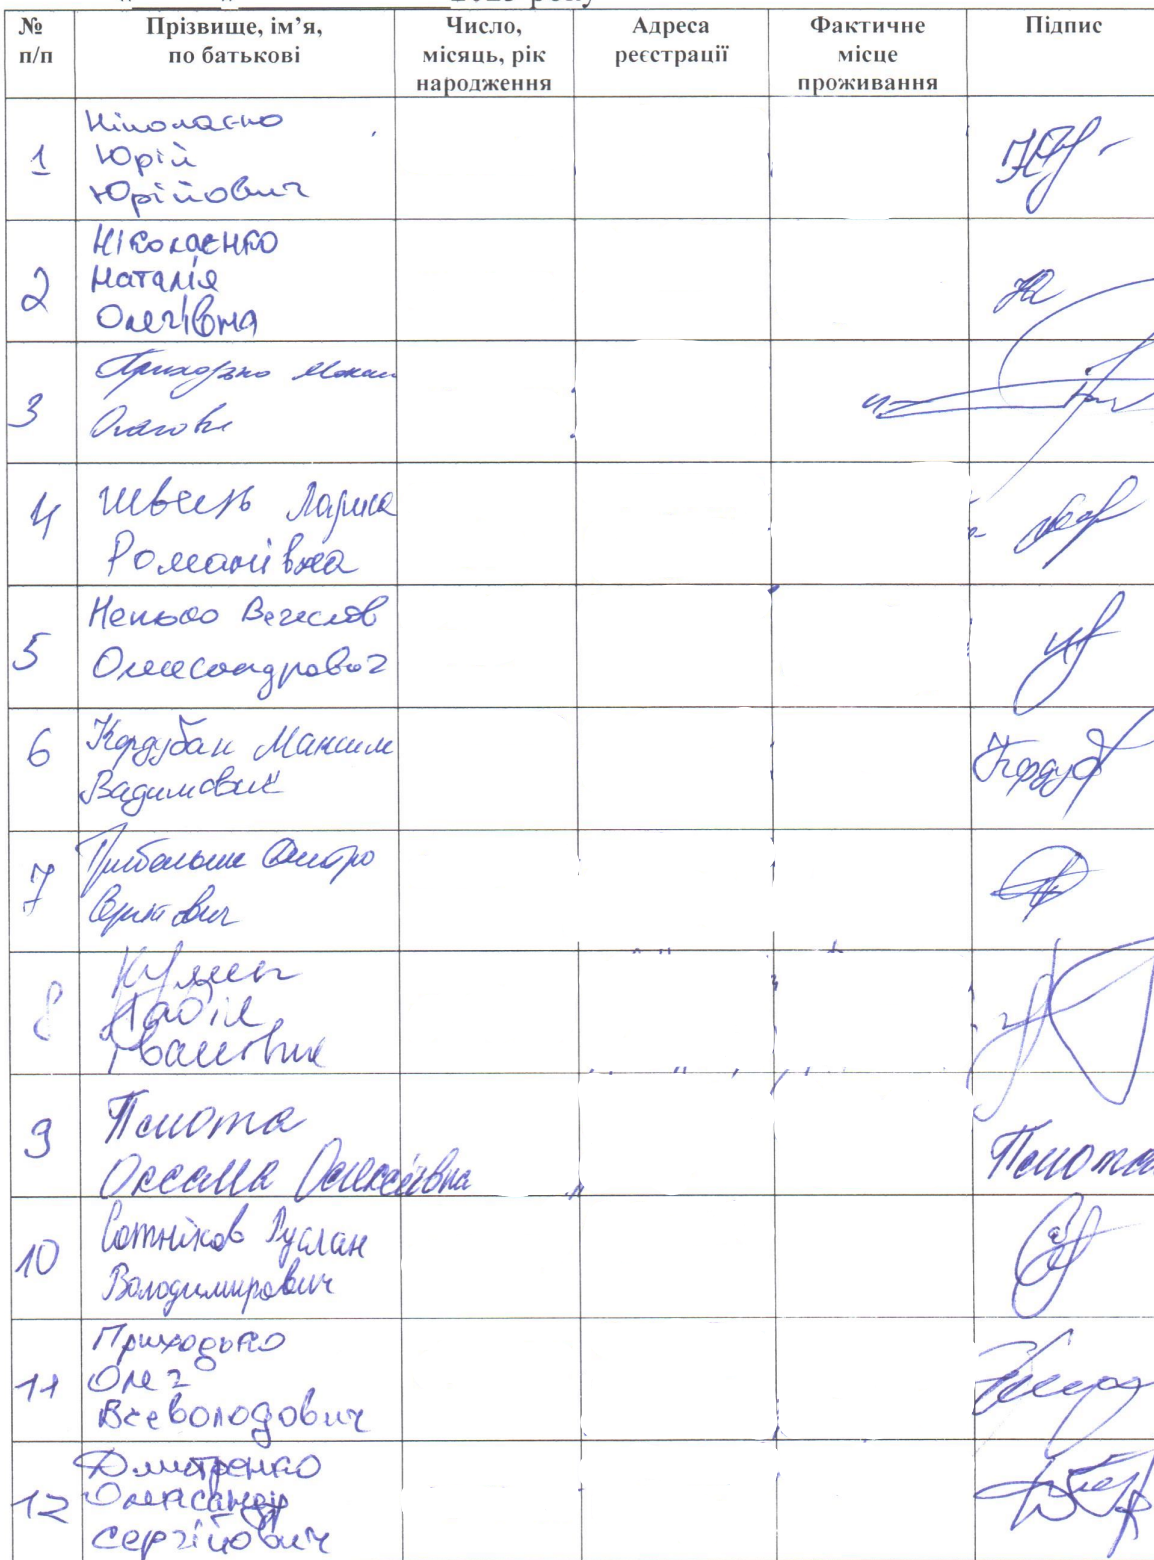 2023 року
№ п/п
Прізвище, ім’я, по батькові
Число, місяць, рік народження
Адреса реєстрації
Фактичне місце проживання
Підпис
1
Ніколаєнко
Юрій
Юрійович
2
Ніколаєнко
Наталія
Олегівна
3
Приходько
4
Швець Лариса
Романівна
5
Олександрович
6
Кордубан Максим
Вадимович
Кордуб
7
Дмитро
Сергійович
8
Іванович
9
Псюта
Оксана Олексіївна
Псюта
10
Сотніков Руслан
Володимирович
11
Приходько
Олег
Всеволодович
12
Дмитренко
Олександр
Сергійович